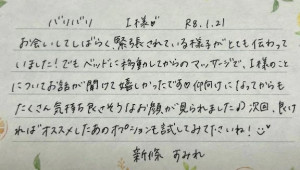 バリバリ I様♡ R8.1.21
お会いしてしばらく、緊張されている様子がとても伝わって
いました!でもベッドに移動してからのマッサージで、I様のこと
についてお話が聞けて嬉しかったです♡仰向けになってからも
たくさん気持ち良さそうなお顔が見られました♪次回、良け
ればオススメしたあのオプションも試してみてださいね!
新條 すみれ